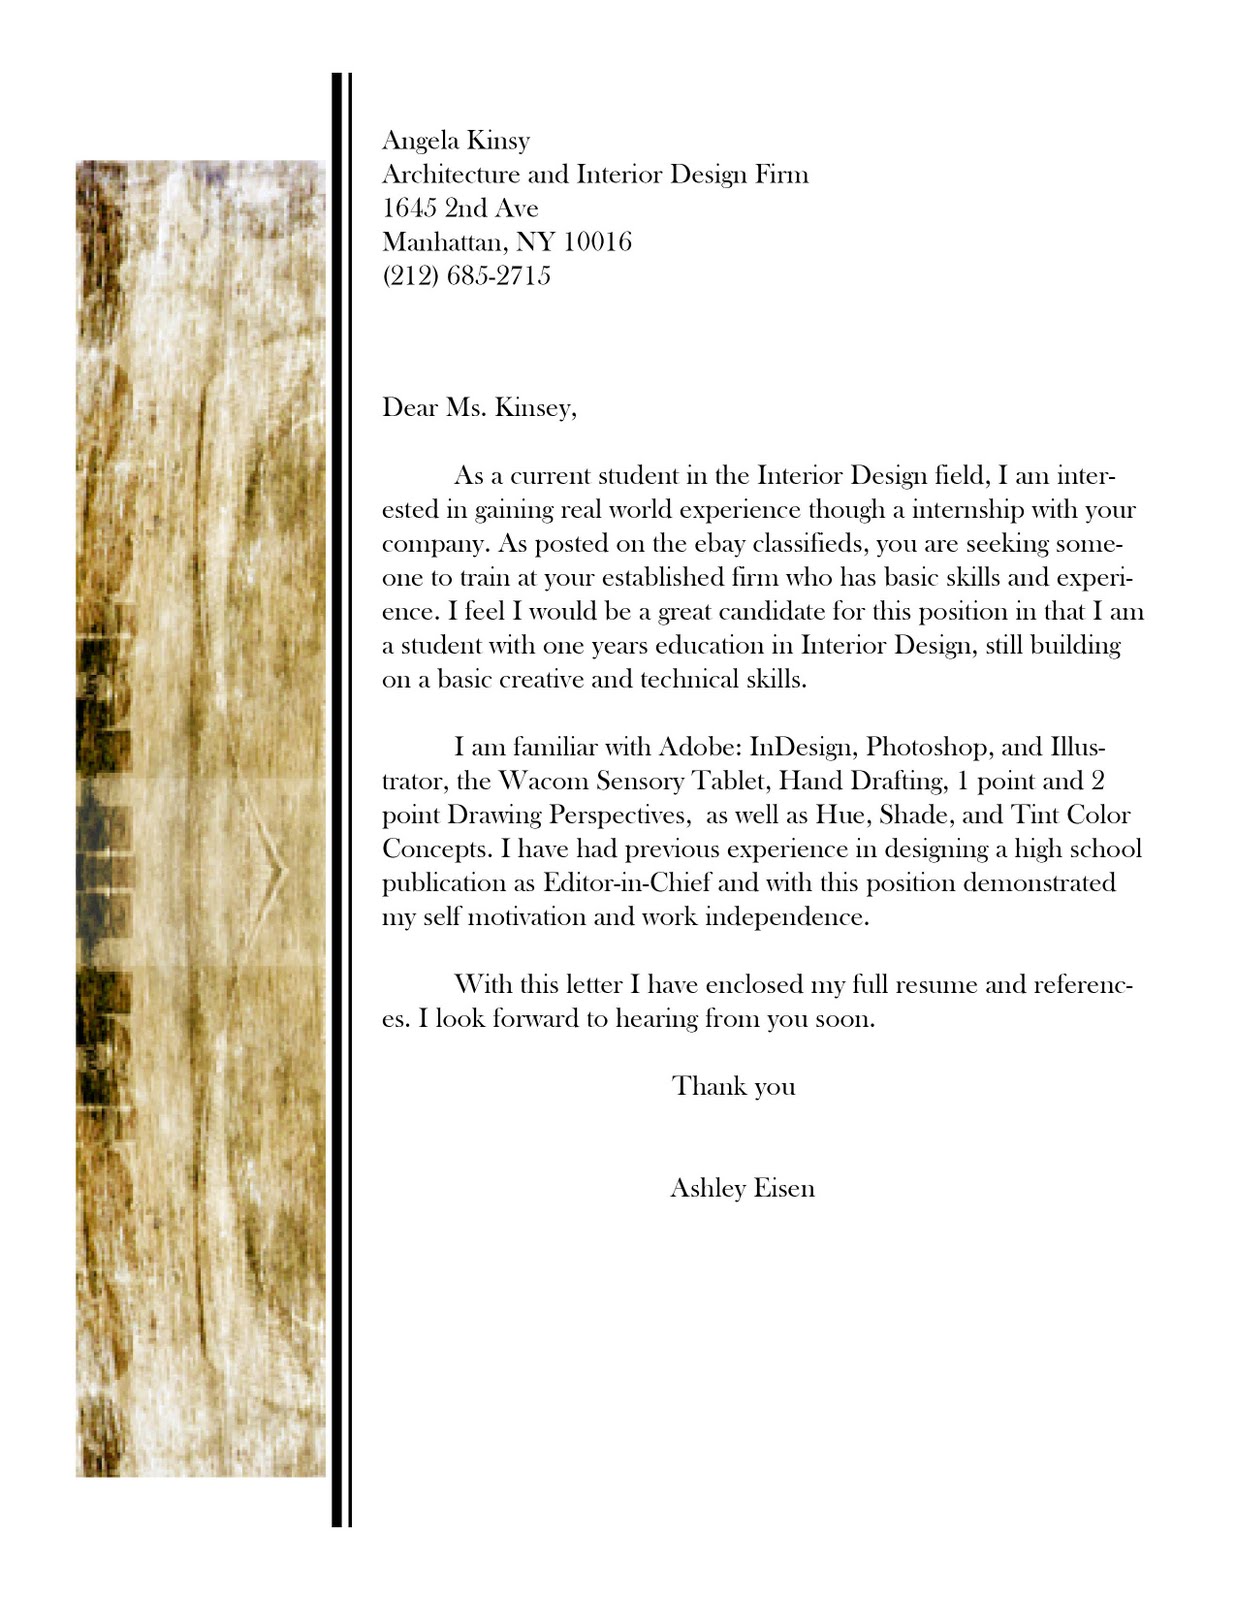 Angela Kinsy
Architecture and Interior Design Firm
1645 2nd Ave
Manhattan, NY 10016
(212) 685-2715
Dear Ms. Kinsey,
As a current student in the Interior Design field, I am inter-
ested in gaining real world experience though a internship with your
company. As posted on the ebay classifieds, you are seeking some-
one to train at your established firm who has basic skills and experi-
ence. I feel I would be a great candidate for this position in that I am
a student with one years education in Interior Design, still building
on a basic creative and technical skills.
I am familiar with Adobe: InDesign, Photoshop, and Illus-
trator, the Wacom Sensory Tablet, Hand Drafting, 1 point and 2
point Drawing Perspectives,  as well as Hue, Shade, and Tint Color
Concepts. I have had previous experience in designing a high school
publication as Editor-in-Chief and with this position demonstrated
my self motivation and work independence.
With this letter I have enclosed my full resume and referenc-
es. I look forward to hearing from you soon.
Thank you
Ashley Eisen